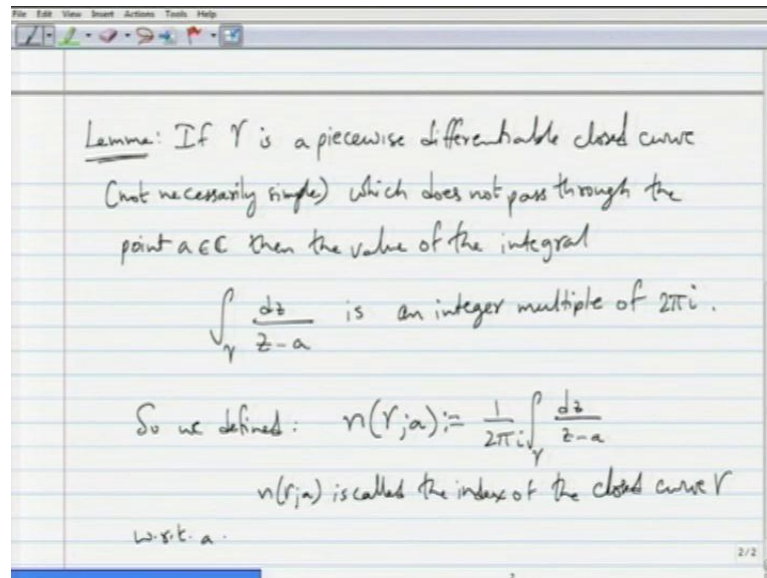 File Edit View Insert Actions Tools Help
Lemma: If γ is a piecewise differentiable closed curve
(not necessarily simple) which does not pass through the
point a ∈ ℂ then the value of the integral
∫_γ dz/(z-a) is an integer multiple of 2πi.
So we defined: n(γ;a) := 1/(2πi) ∫_γ dz/(z-a)
n(γ;a) is called the index of the closed curve γ
w.r.t. a.
2/2